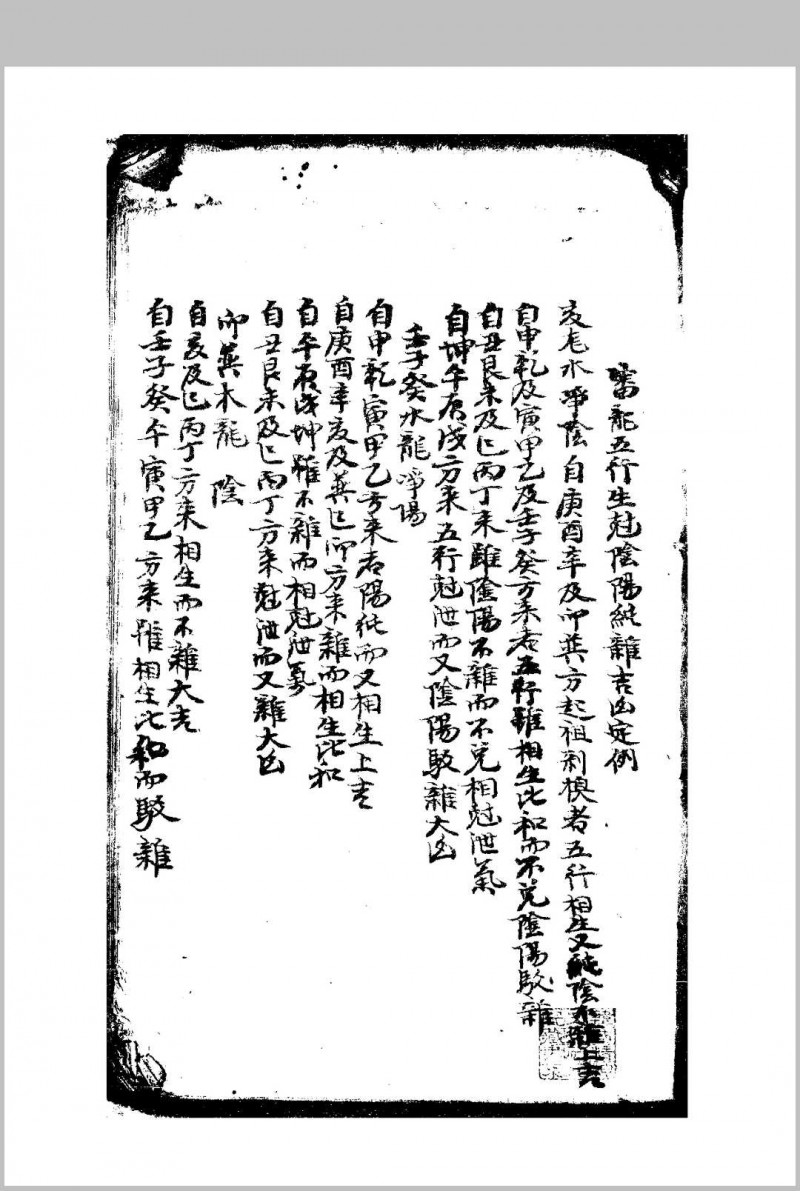 審龍五行生尅陰陽純雜吉凶定例
亥龍水淨陰自庚酉辛及卯巽方起祖剥換者五行相生又純陰不雜上吉
自申乾及寅甲乙及壬子癸方来者五行雖相生比和而不免陰陽駁雜
自丑艮未及巳丙丁来雖陰陽不雜而不免相尅泄氣
自坤午辰戌方来五行尅泄而又陰陽駁雜大凶
壬子癸水龍淨陽
自申乾寅甲乙方来者陽純而又相生上吉
自庚酉辛亥及巽巳卯方来雜而相生比和
自午辰戌坤雖不雜而相尅泄氣
自丑艮未及巳丙丁方来尅泄而又雜大凶
卯巽木龍 陰
自亥及巳丙丁方来相生而不雜大吉
自壬子癸午寅甲乙方来雖相生比和而駁雜